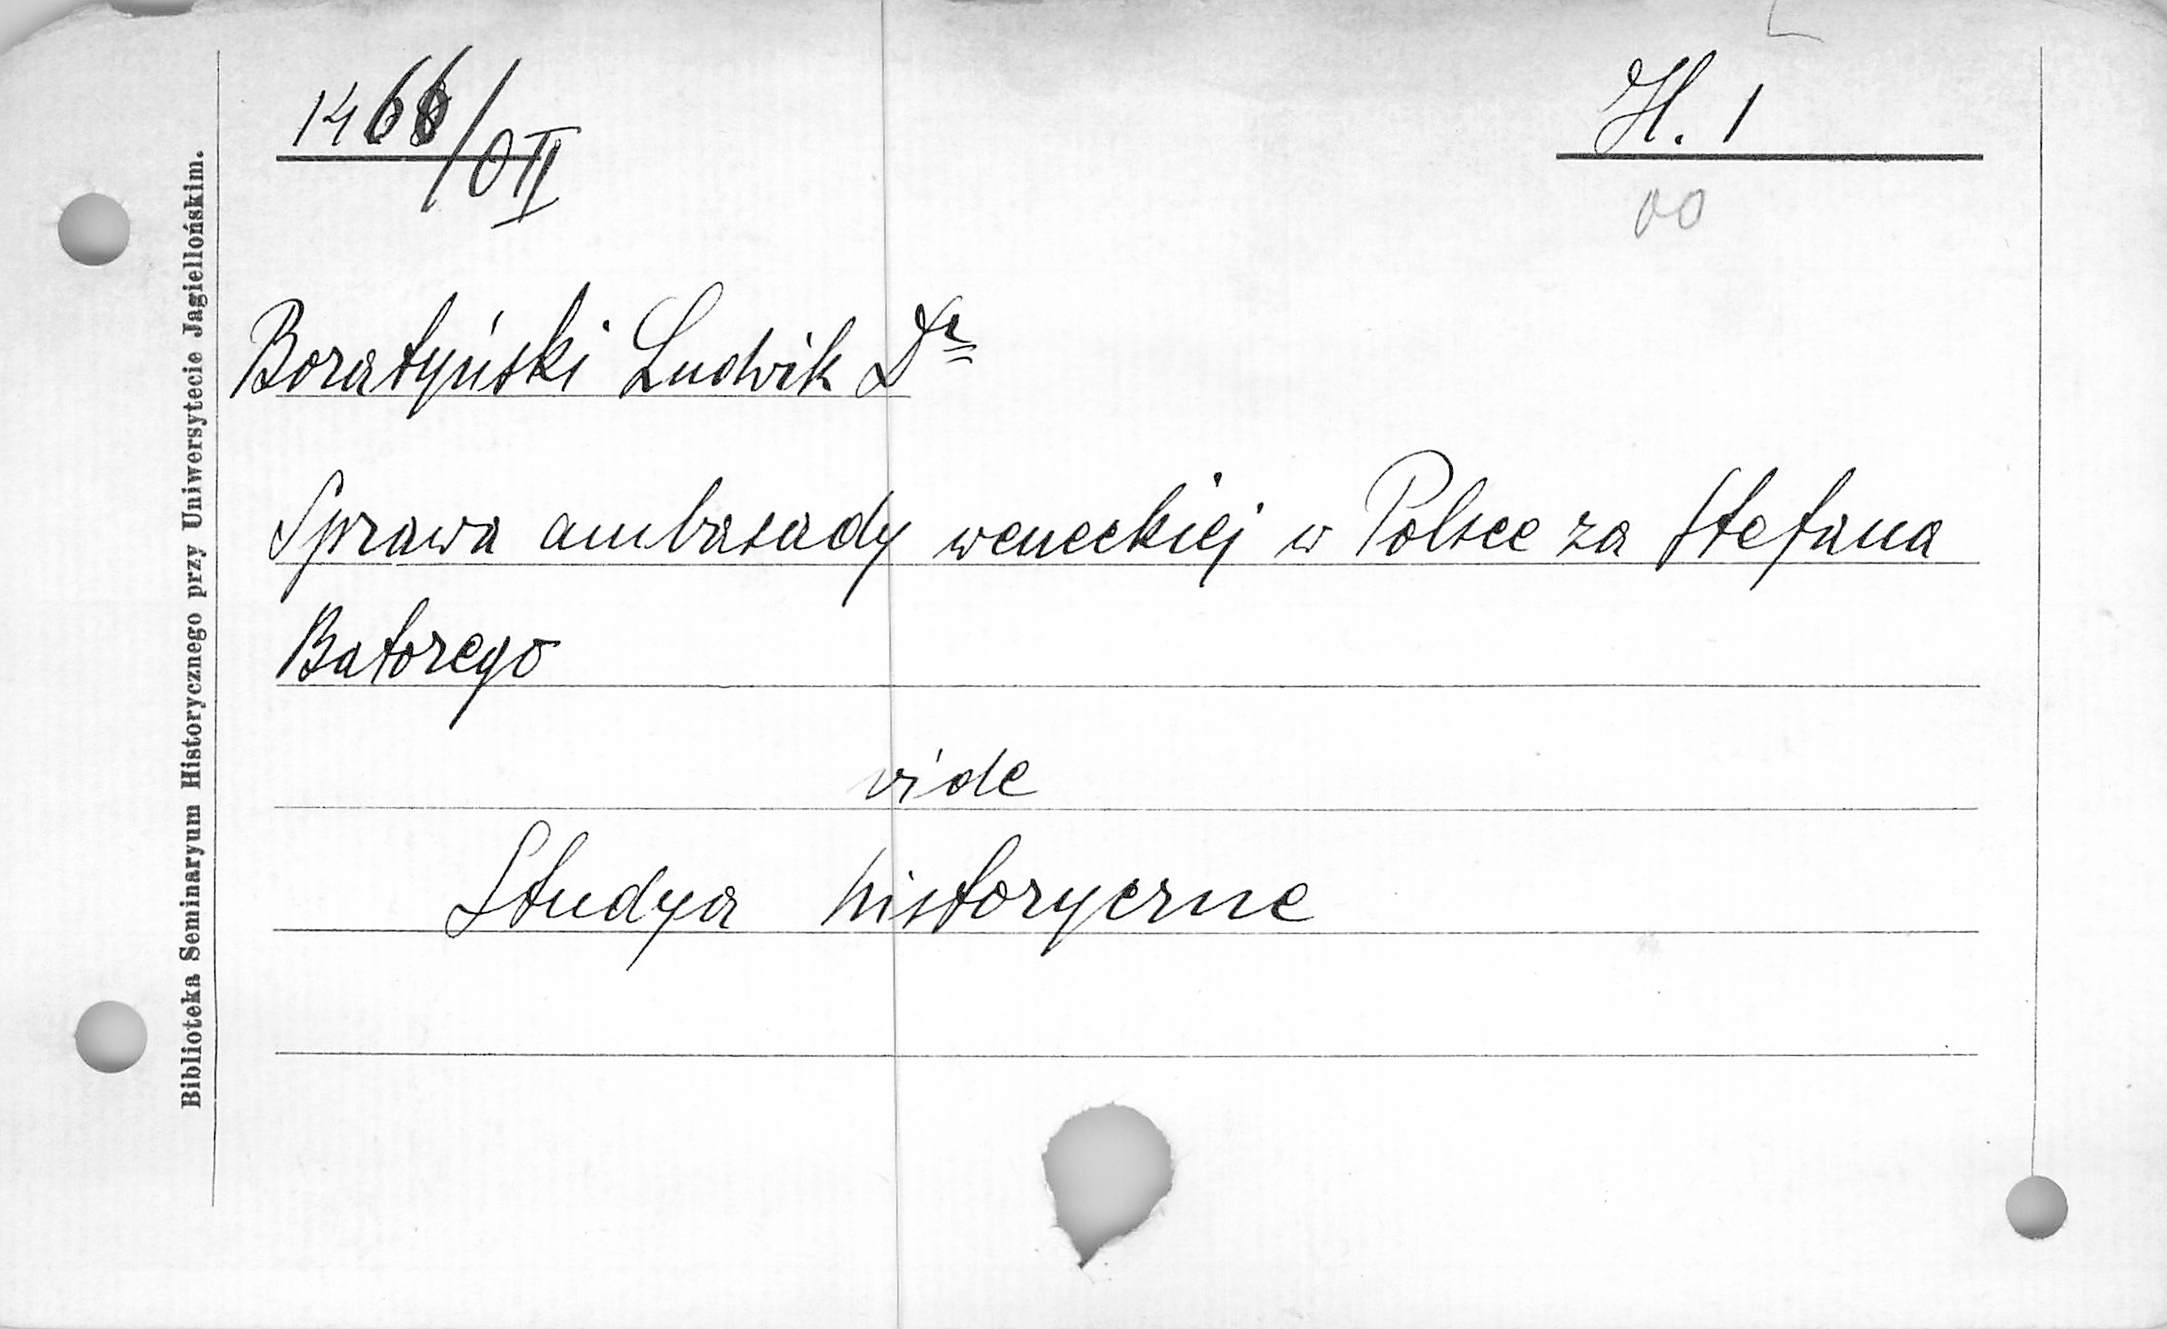 1466/OII
H. 1
00
Boratyński Ludwik Dr
Sprawa ambasady weneckiej w Polsce za Stefana
Batorego
vide
Studya historyczne
Biblioteka Seminaryum Historycznego przy Uniwersytecie Jagiellońskim.